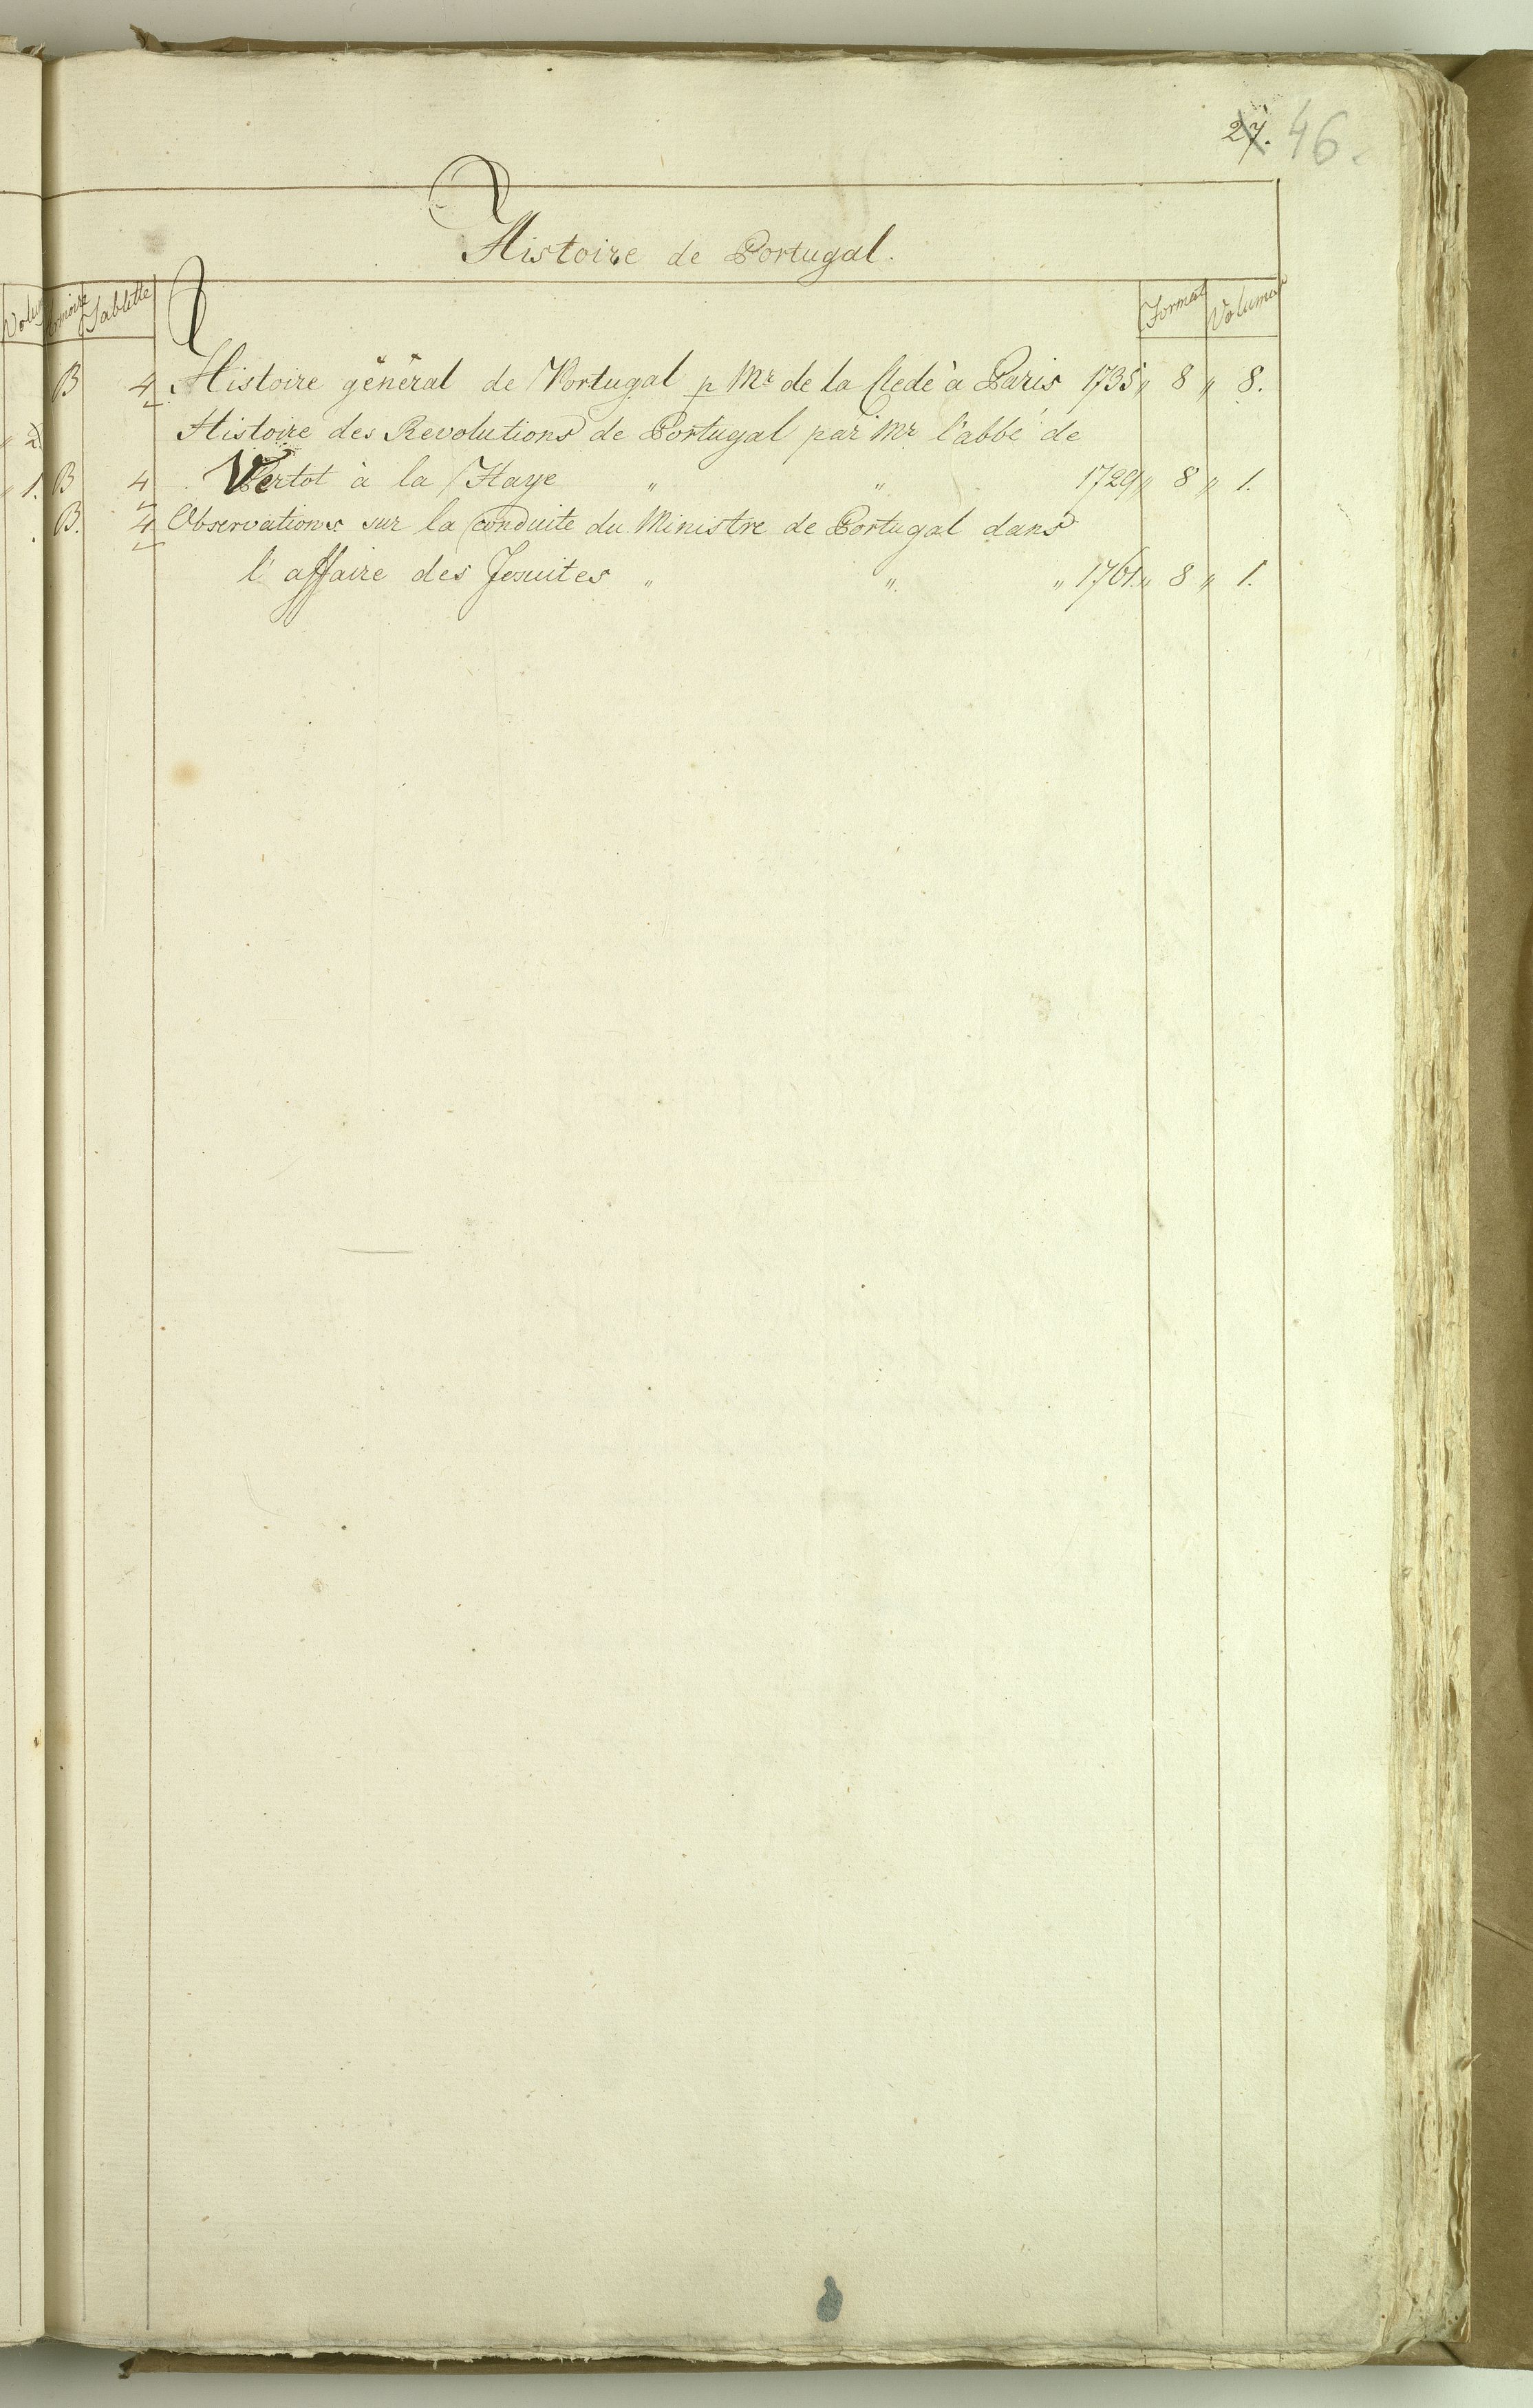 27. 46.
Histoire de Portugal.
Tablette Format Volumes
B 4 Histoire général de Portugal p Mr de la Clede à Paris 1735 „ 8 „ 8.
Histoire des Revolutions de Portugal par Mr l'abbé de
B 4 Vertot à la Haye „ „ 1729 „ 8 „ 1.
B. 4 Observations sur la conduite du Ministre de Portugal dans
l'affaire des Jesuites „ „ „ 1761 „ 8 „ 1.